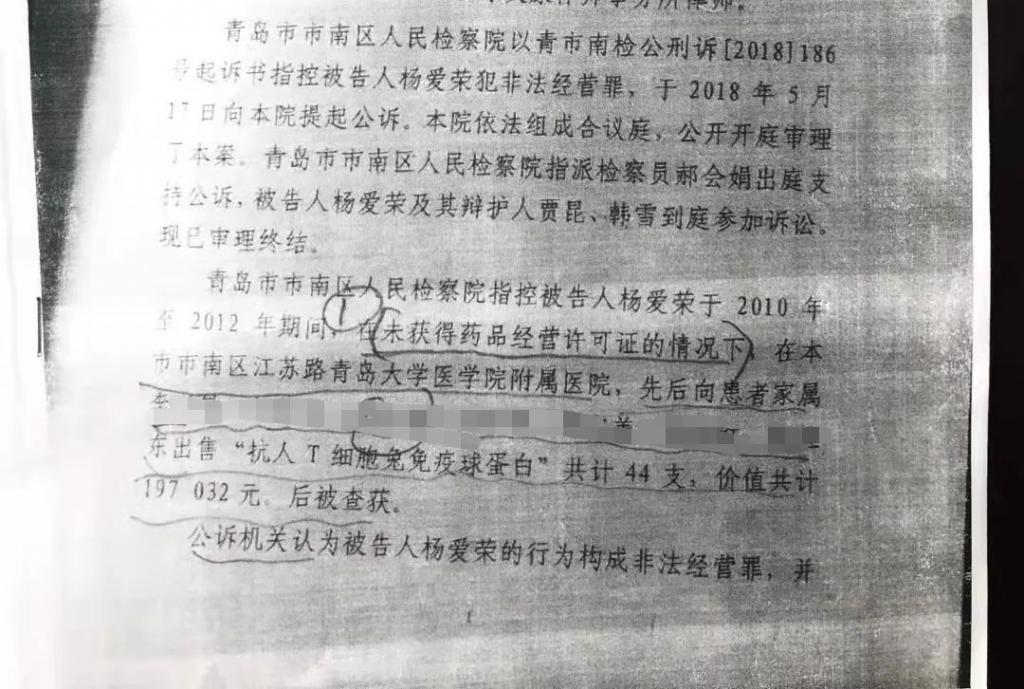 事务所律师。
青岛市市南区人民检察院以青市南检公刑诉[2018]186
号起诉书指控被告人杨爱荣犯非法经营罪，于 2018 年 5 月
17 日向本院提起公诉。本院依法组成合议庭，公开开庭审理
了本案。青岛市市南区人民检察院指派检察员郝会娟出庭支
持公诉，被告人杨爱荣及其辩护人贾昆、韩雪到庭参加诉讼。
现已审理终结。
青岛市市南区人民检察院指控被告人杨爱荣于 2010 年
1
至 2012 年期间，在未获得药品经营许可证的情况下，在本
市市南区江苏路青岛大学医学院附属医院，先后向患者家属
东出售“抗人 T 细胞兔免疫球蛋白”共计 44 支，价值共计
197 032 元。后被查获。
公诉机关认为被告人杨爱荣的行为构成非法经营罪，并
1